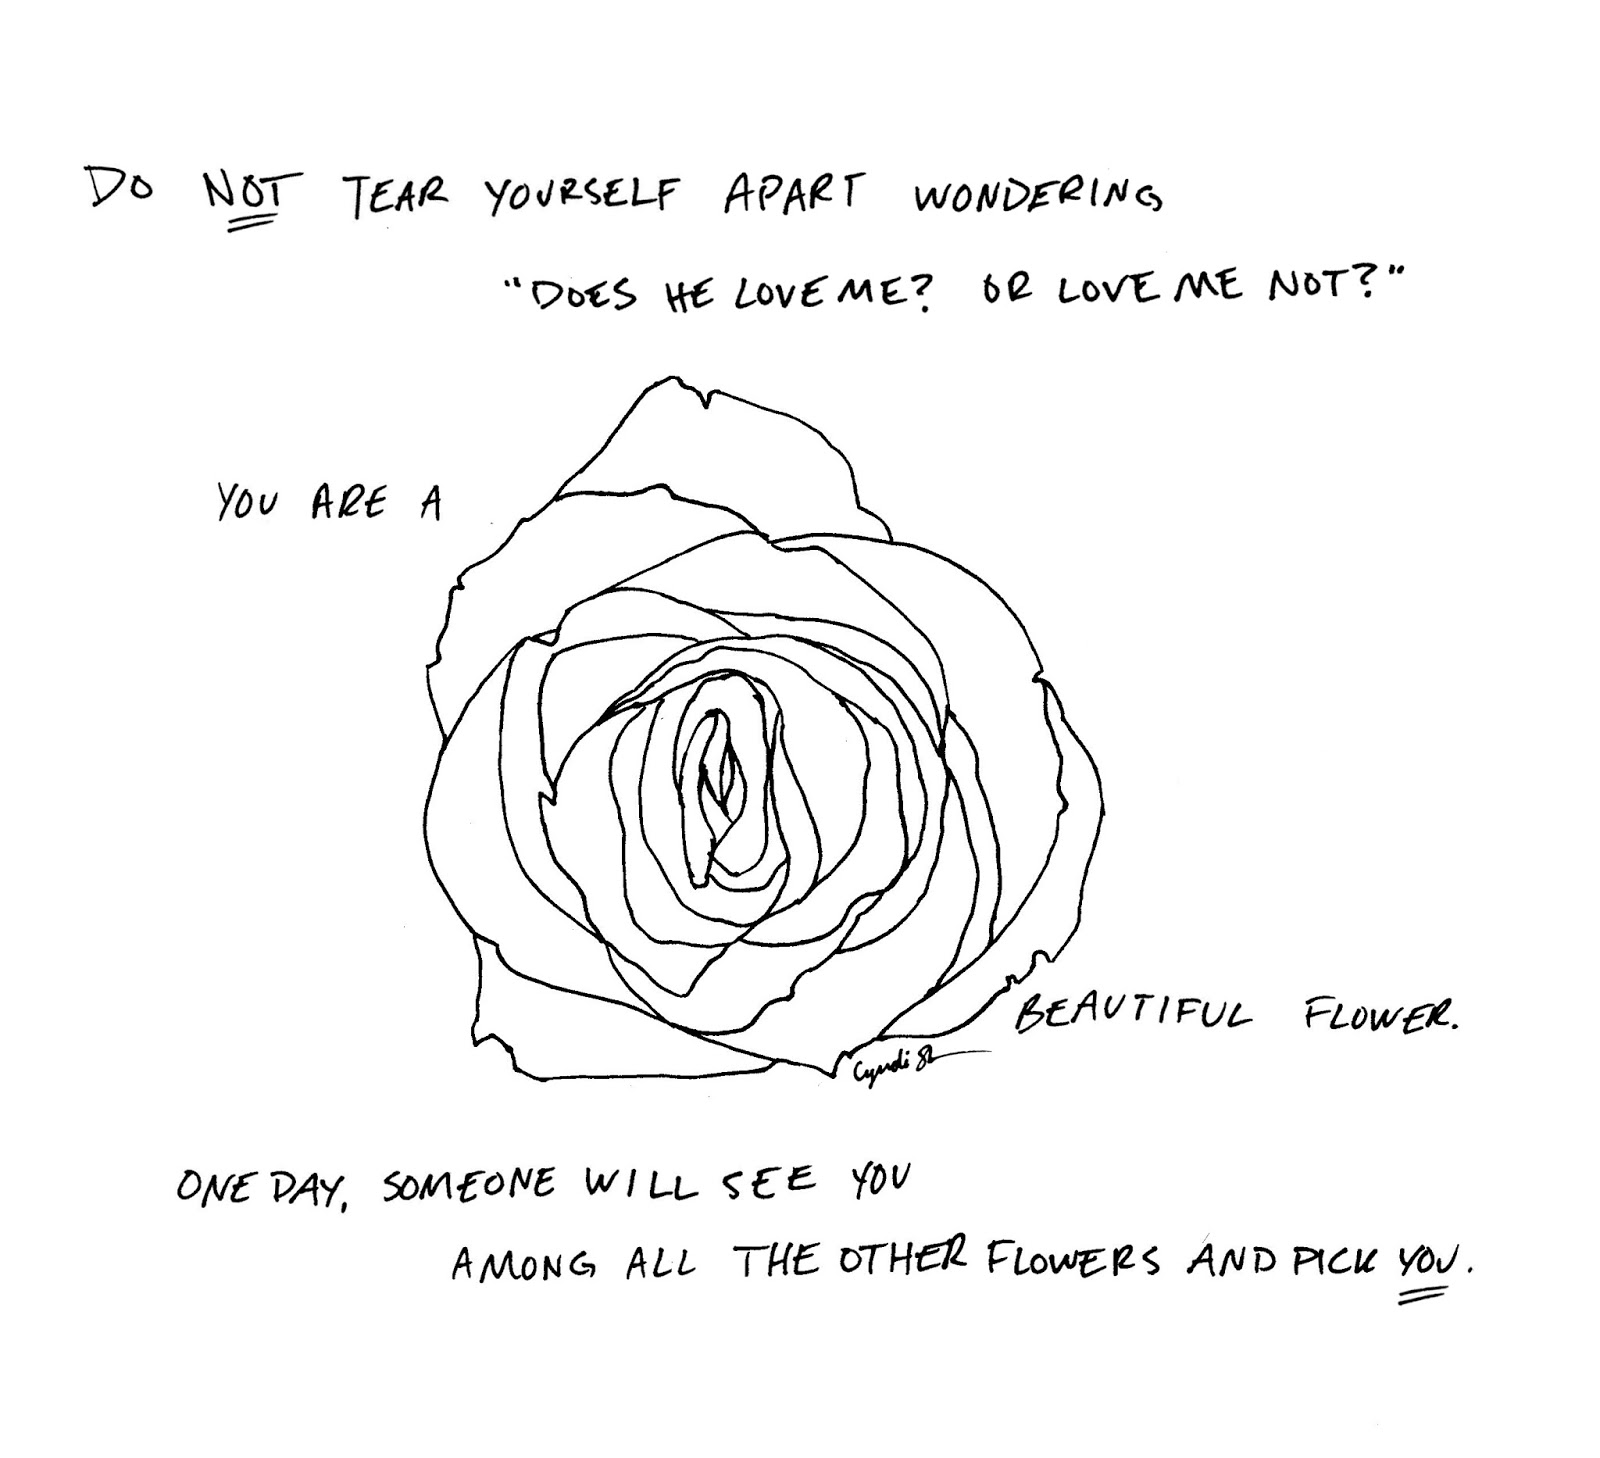 DO NOT TEAR YOURSELF APART WONDERING
"DOES HE LOVE ME? OR LOVE ME NOT?"
YOU ARE A
BEAUTIFUL FLOWER.
Cyndi
ONE DAY, SOMEONE WILL SEE YOU
AMONG ALL THE OTHER FLOWERS AND PICK YOU.